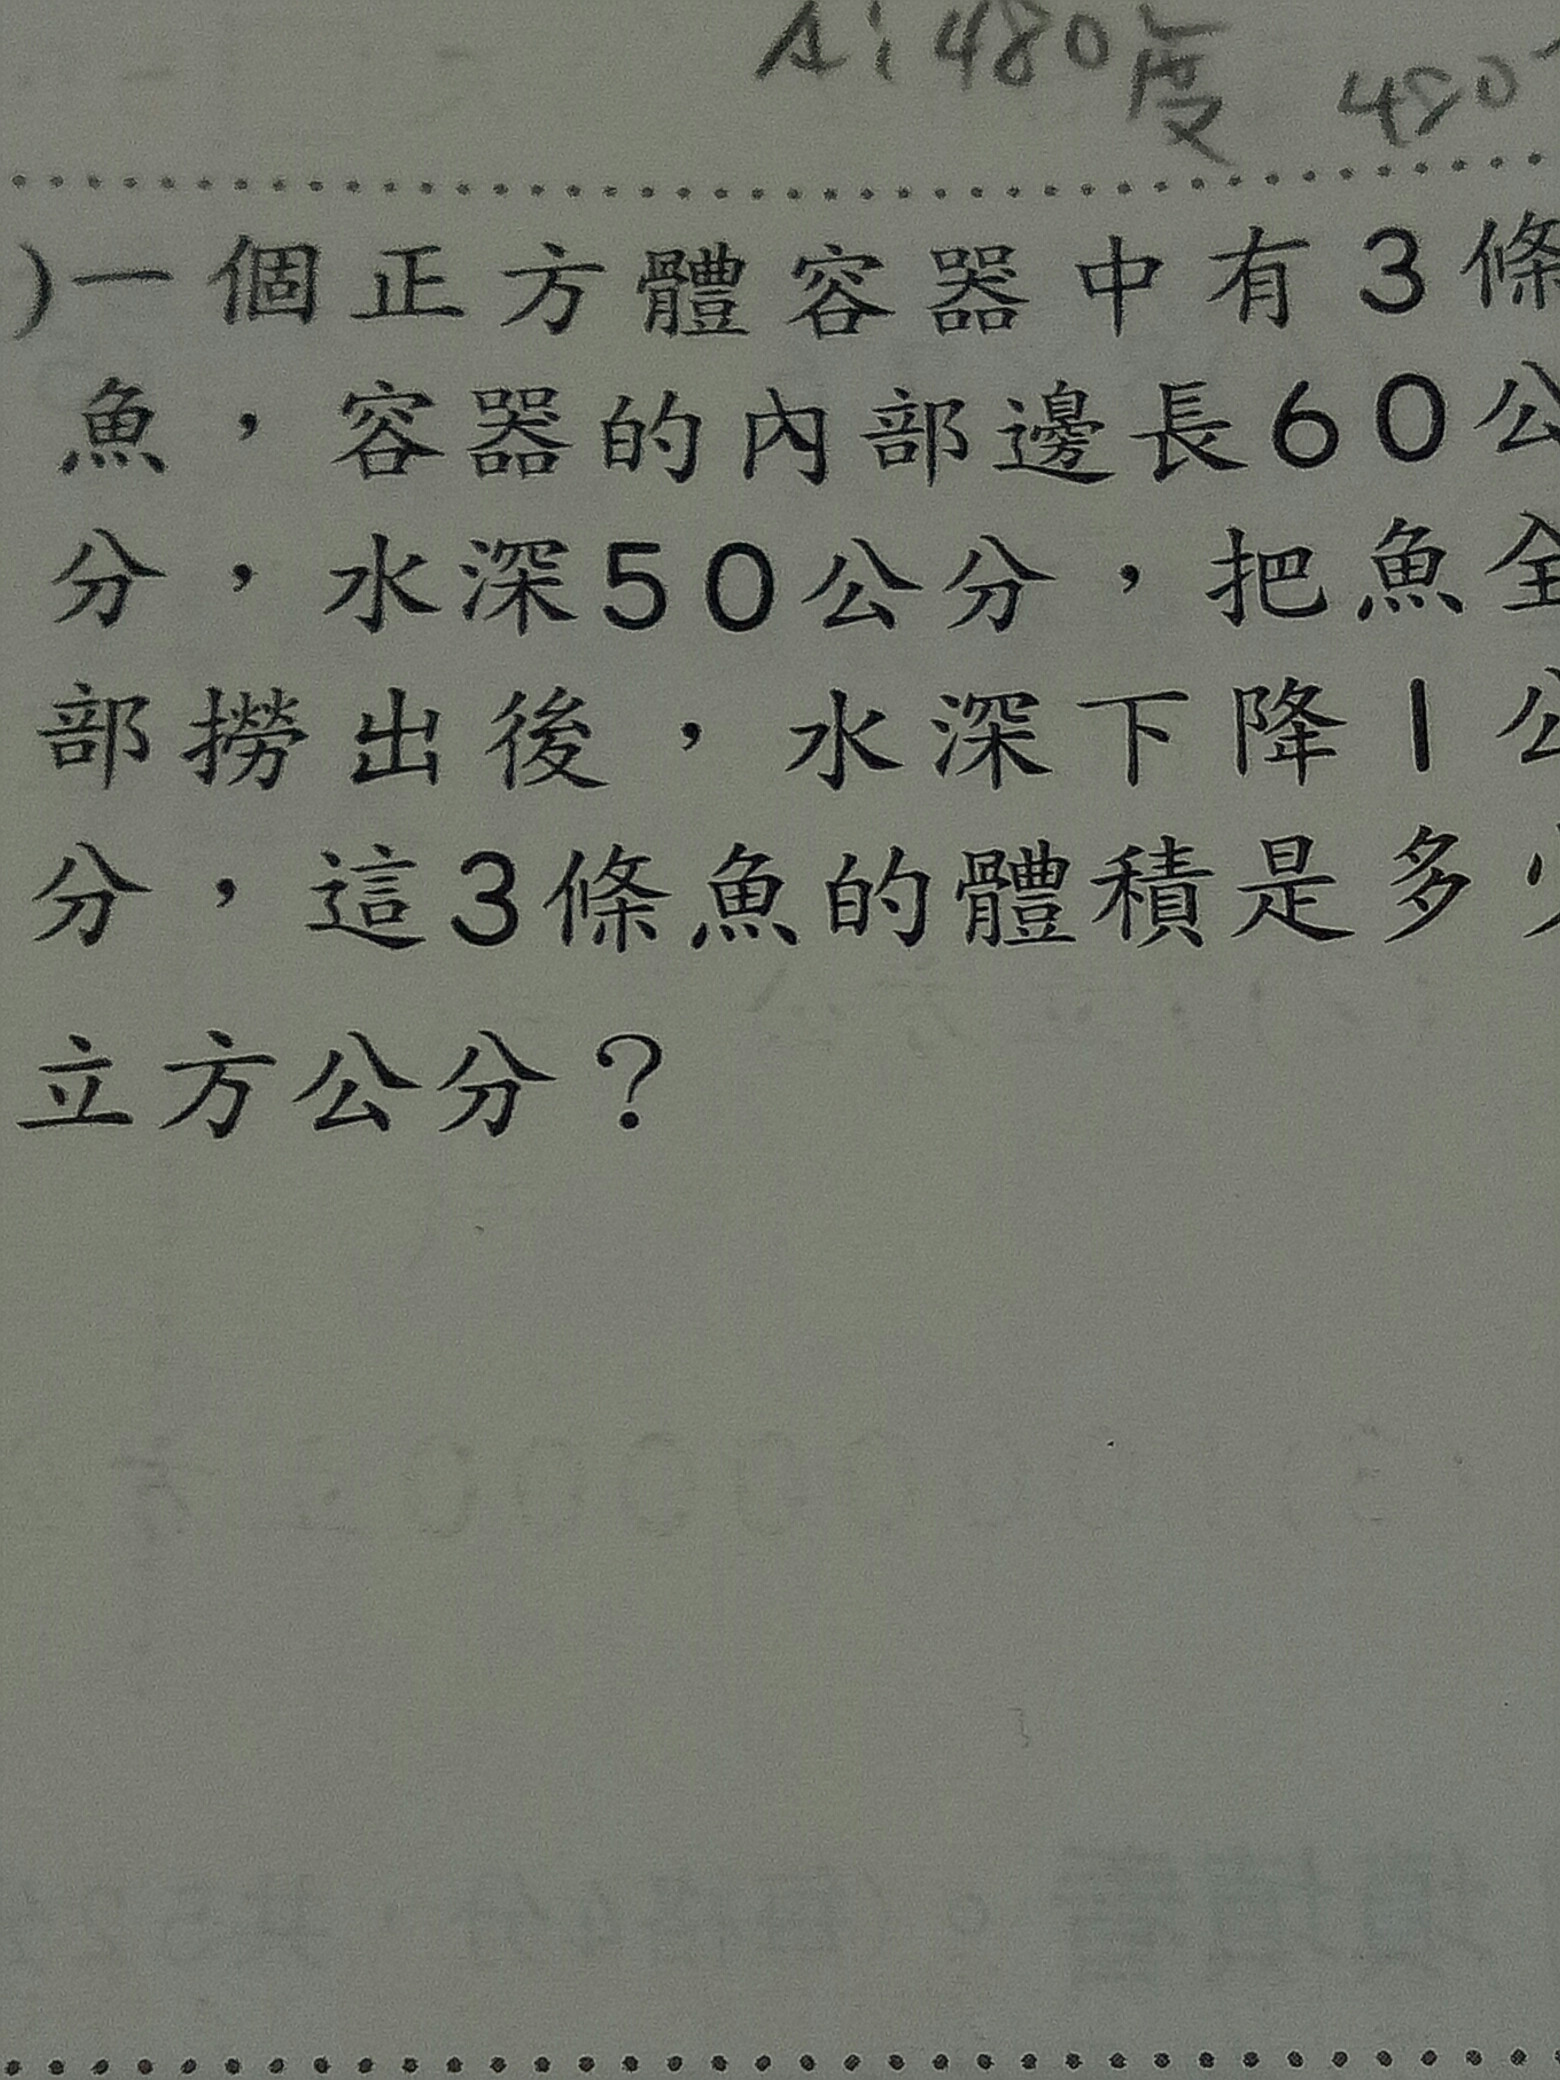 A: 480度 480
)一個正方體容器中有3條
魚，容器的內部邊長60公
分，水深50公分，把魚全
部撈出後，水深下降1公
分，這3條魚的體積是多少
立方公分？